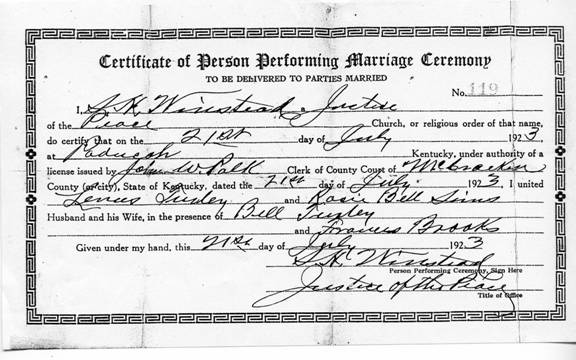 Certificate of Person Performing Marriage Ceremony
TO BE DELIVERED TO PARTIES MARRIED
No. 119
I, S. K. Winstead, a Justice
of the Peace Church, or religious order of that name,
do certify that on the 21st day of July 1923,
at Paducah Kentucky, under authority of a
license issued by John W Polk Clerk of County Court of McCracken
County (or city), State of Kentucky, dated the 21st day of July 1923, I united
Turley and Rosie Bell Sims
Husband and his Wife, in the presence of Bell Turley
and Frances Brooks
Given under my hand, this 21st day of July 1923
S. K. Winstead
Person Performing Ceremony, Sign Here
Justice of the Peace
Title of Office